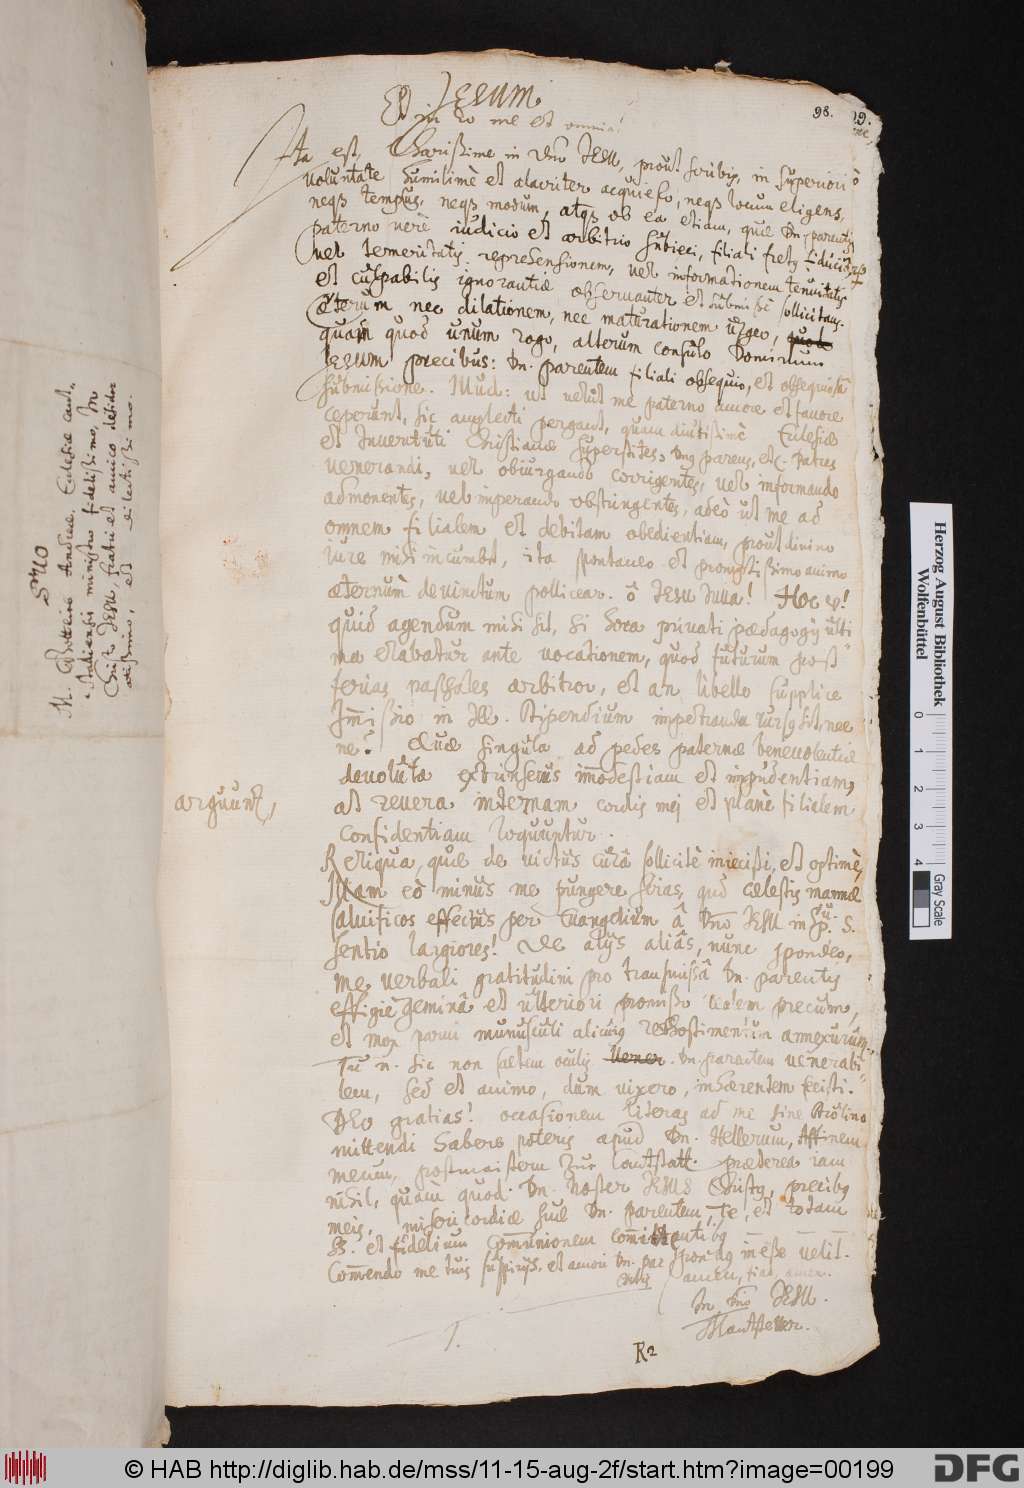 98.
99.
Jesum
Et in eo me et omnia!
Ita est, Charissime in Dno JESU, prout scribis, in superiori
voluntate humilimè et alacriter acquiesco, neqs locum eligens,
neqs tempus, neqs modum, atqs ob ea etiam, quae Dn. parentis
paterno verè iudicio et arbitrio subieci, filiali fretus fiduciâ
vel temeritatis reprehensionem, vel informationem tenuitatis
et culpabilis ignorantiae observanter et submissè sollicitans.
Caeterum nec dilationem, nec maturationem urgeo,
quàm quod unum rogo, alterum consulo Dominum
Jesum precibus: Dn. parentem filiali obsequio, et obsequiosâ
submissione. Illud: ut velut me paterno amore et favore
ceperunt, sic amplecti pergant, quàm diutissimè Ecclesiae
et Iuventuti Christianae superstites, Dnq parens, etc. Patres
venerandi, vel obiurgando corrigentes, vel informando
admonentes, vel imperando obstringentes, adeò ut me ad
omnem filialem et debitam obedientiam, prout divino
iure mihi incumbit, ita spontaneo et promptissimo animo
aeternùm devinctum pollicear. ô JESU Juva! Hoc
quid agendum mihi sit, si hora privati paedagogij ulti
ma elabatur ante vocationem, quod futurum post
ferias paschales arbitror, et an libello supplice
Immissio in Stipendium impetranda rursq sit, nec
ne? Quae singula ad pedes paternae benevolentiae
devoluta extrinsecus immodestiam et impudentiam,
arguunt,
at revera internam cordis mei et planè filialem
confidentiam loquuntur.
Reliqua, quae de victus curâ sollicitè iniecisti, et optimè,
Istam eò minus me pungere scias, quò caelestis mannae
salvificos effectus per Evangelium â Dno JESU in Sp. S.
sentio largiores! De alijs aliâs, nunc spondeo,
me verbali gratitudini pro transmissâ Dn. parentis
effigie geminâ et ulteriori promisso talem precum,
et mox parvi munusculi alicuiq redhostimentum annexurum.
Tu n. sic non saltem oculis Dn. parentem venerabi
lem, sed et animo, dum vixero, inhaerentem fecisti.
DEO gratias! occasionem literas ad me sine
mittendi habere poteris apud Dn. Hellerum, Affinem
meum, postmeistern zur Cantstatt. praeterea iam
nihil, quàm quod Dn. noster JESUS Christq, precibq
meis, misericordiae suae Dn. parentem, Te, et totam
SS. et fidelium communionem committentibq
Commendo me tuis suspirijs, et amori Dn. par
entis
amen, fiat, amen.
In Dno JESU.
R2
M. Gottlieb Andreae, Ecclesiae
ministro fidelissimo, In
Christo JESU, fratri et amico
et dilectissimo.
Herzog August Bibliothek
Wolfenbüttel
0 1 2 3 4
Gray Scale
© HAB http://diglib.hab.de/mss/11-15-aug-2f/start.htm?image=00199
DFG